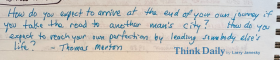 How do you expect to arrive at the end of your own journey if
you take the road to another man's city? How do you
expect to reach your own perfection by leading somebody else's
life? - Thomas Merton
Think Daily by Larry Janesky